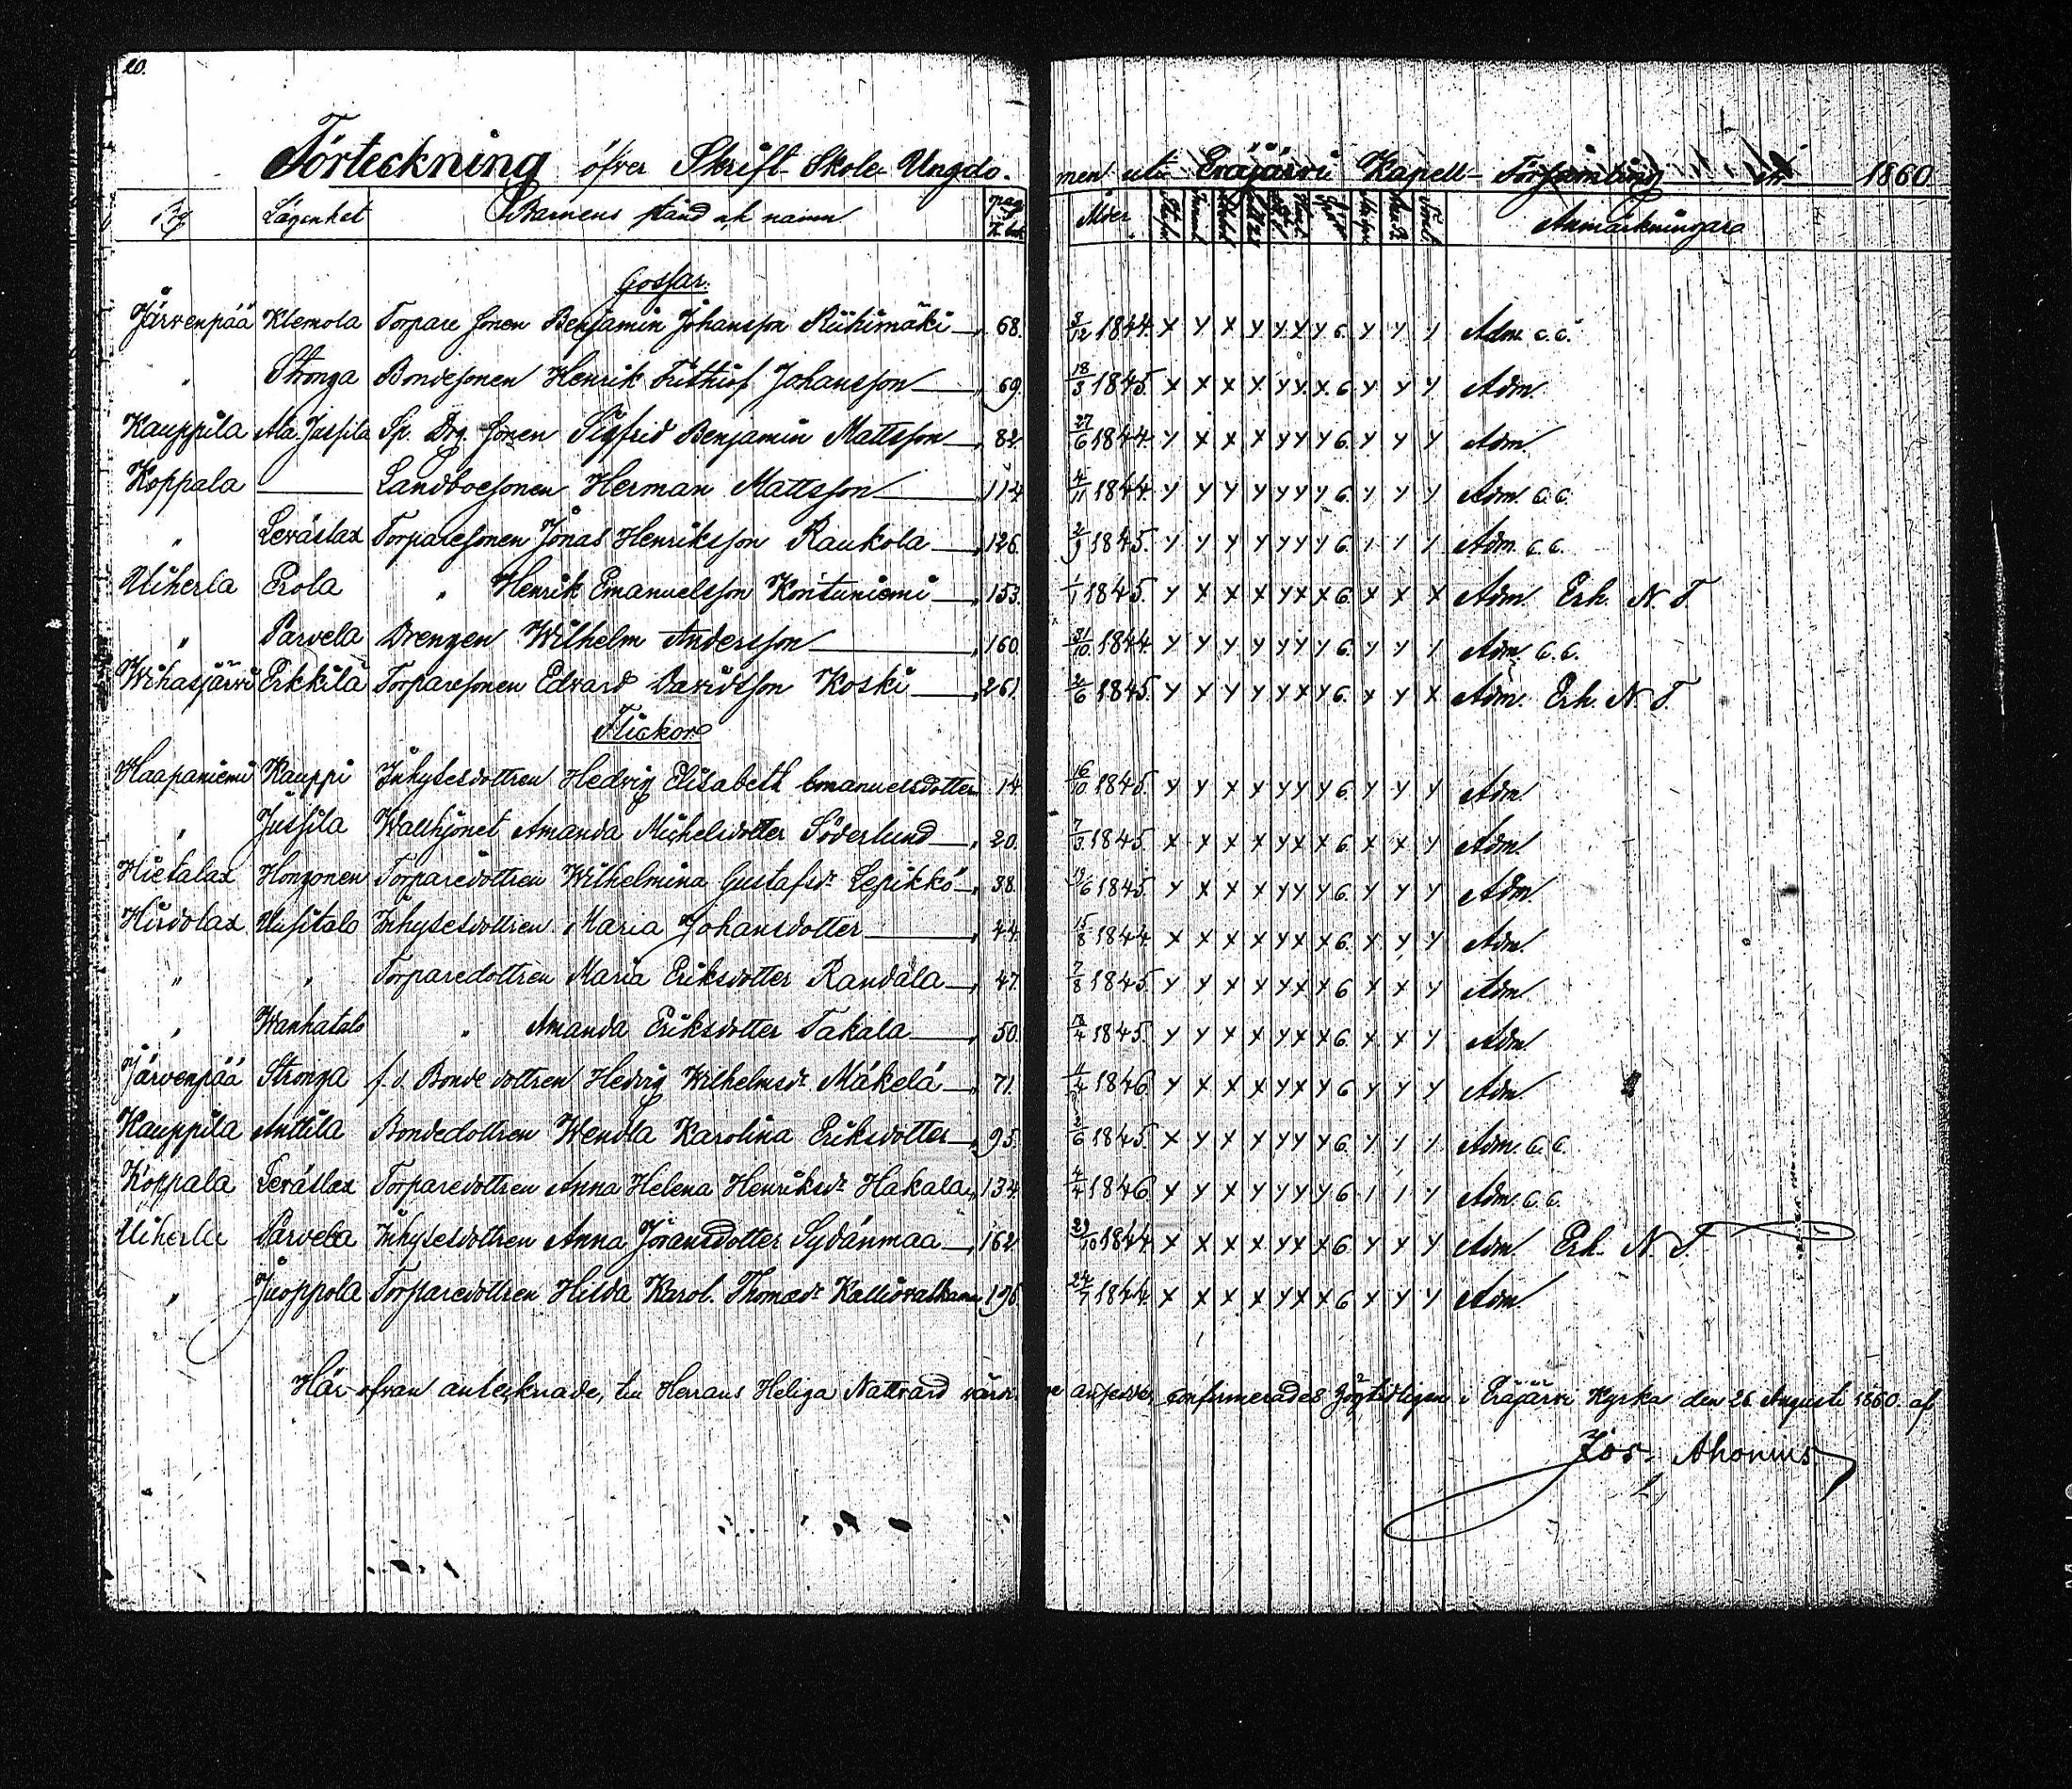 20.
Förteckning öfver Skrift-Skole-Ungdomen uti Eräjärvi Kapell-Församling år 1860
By Lägenhet Barnens stånd och namn pag. i K. bok Ålder Anmärkningar
Gossar.
Järvenpää Klemola Torpare sonen Benjamin Johansson Riihimäki 68. 8/12 1844. x y x y y x y 6. y y y Adm. C.C.
" Stronga Bondesonen Henrik Frithiof Johansson 69. 18/3 1845. x x x x y x x 6. y y y Adm.
Kauppila Ala Jussila Sp. Drg. sonen Sigfrid Benjamin Mattsson 82. 27/6 1844. y x x x y y y 6. y y y Adm.
Koppala Landboesonen Herman Mattsson 114 4/11 1844. y y y y y y y 6. y y y Adm. C.C.
" Leväslax Torparesonen Jonas Henriksson Raukola 126. 2/9 1845. y y y y y y y 6. 1 1 1 Adm. C.C.
Uiherla Erola " Henrik Emanuelsson Kontuniemi 153. 1/1 1845. y x x x y x x 6. x x x Adm. Erh. N. T.
" Parvela Drengen Wilhelm Andersson 160. 31/10 1844. y y y y y y y 6. y y 1 Adm. C.C.
Wihasjärvi Erkkilä Torparesonen Edvard Davidsson Koski 261. 2/6 1845. y x y y x x y 6. x y x Adm. Erh. N. T.
Flickor
Haapaniemi Kauppi Inhysesdottren Hedvig Elisabeth Emanuelsdotter 14. 16/10 1845. y y x x y y y 6. y y y Adm.
" Jussila Wallhjonet Amanda Michelsdotter Söderlund 20. 7/3 1845. x x x x y x x 6. x x y Adm.
Hietalax Honganen Torparedottren Wilhelmina Gustafsdr Lepikkö 38. 19/6 1845. y x x x y y y 6. y y y Adm.
Hirdolax Uusitalo Inhysesdottren Maria Johansdotter 44. 15/8 1844. x x x x y x x 6. x y y Adm.
" " Torparedottren Maria Eriksdotter Randala 47. 7/8 1845. y y y y y x x 6 x x y Adm.
" Wanhatalo " Amanda Eriksdotter Takala 50. 18/4 1845. y y x x y x x 6. x x y Adm.
Järvenpää Stronga f.d. Bonde dottren Hedvig Wilhelmsdr Mäkelä 71. 1/4 1846. y x x x y x y 6 y y y Adm.
Kauppila Anttila Bondedottren Wendla Karolina Eriksdotter 95. 2/6 1845. x y x x y y y 6. y 1 1 Adm. C.C.
Koppala Leväslax Torparedottren Anna Helena Henriksdr Hakala 134. 4/4 1846. x y x y y y y 6 1 1 y Adm. C.C.
Uiherla Parvela Inhysesdottren Anna Jöransdotter Sydänmaa 162 29/10 1844. x x x x y x x 6 y x y Adm. Erh. N. T.
" Juoppola Torparedottren Hilda Karol. Thomædr 196. 24/7 1844. x x x x y x x 6 x y y Adm.
Här ofvan antecknade, till Herrans Heliga Nattvard värdige ansedde, confirmerades högtidligen i Eräjärvi Kyrka den 26 Augusti 1860. af
Jos. Ahonius